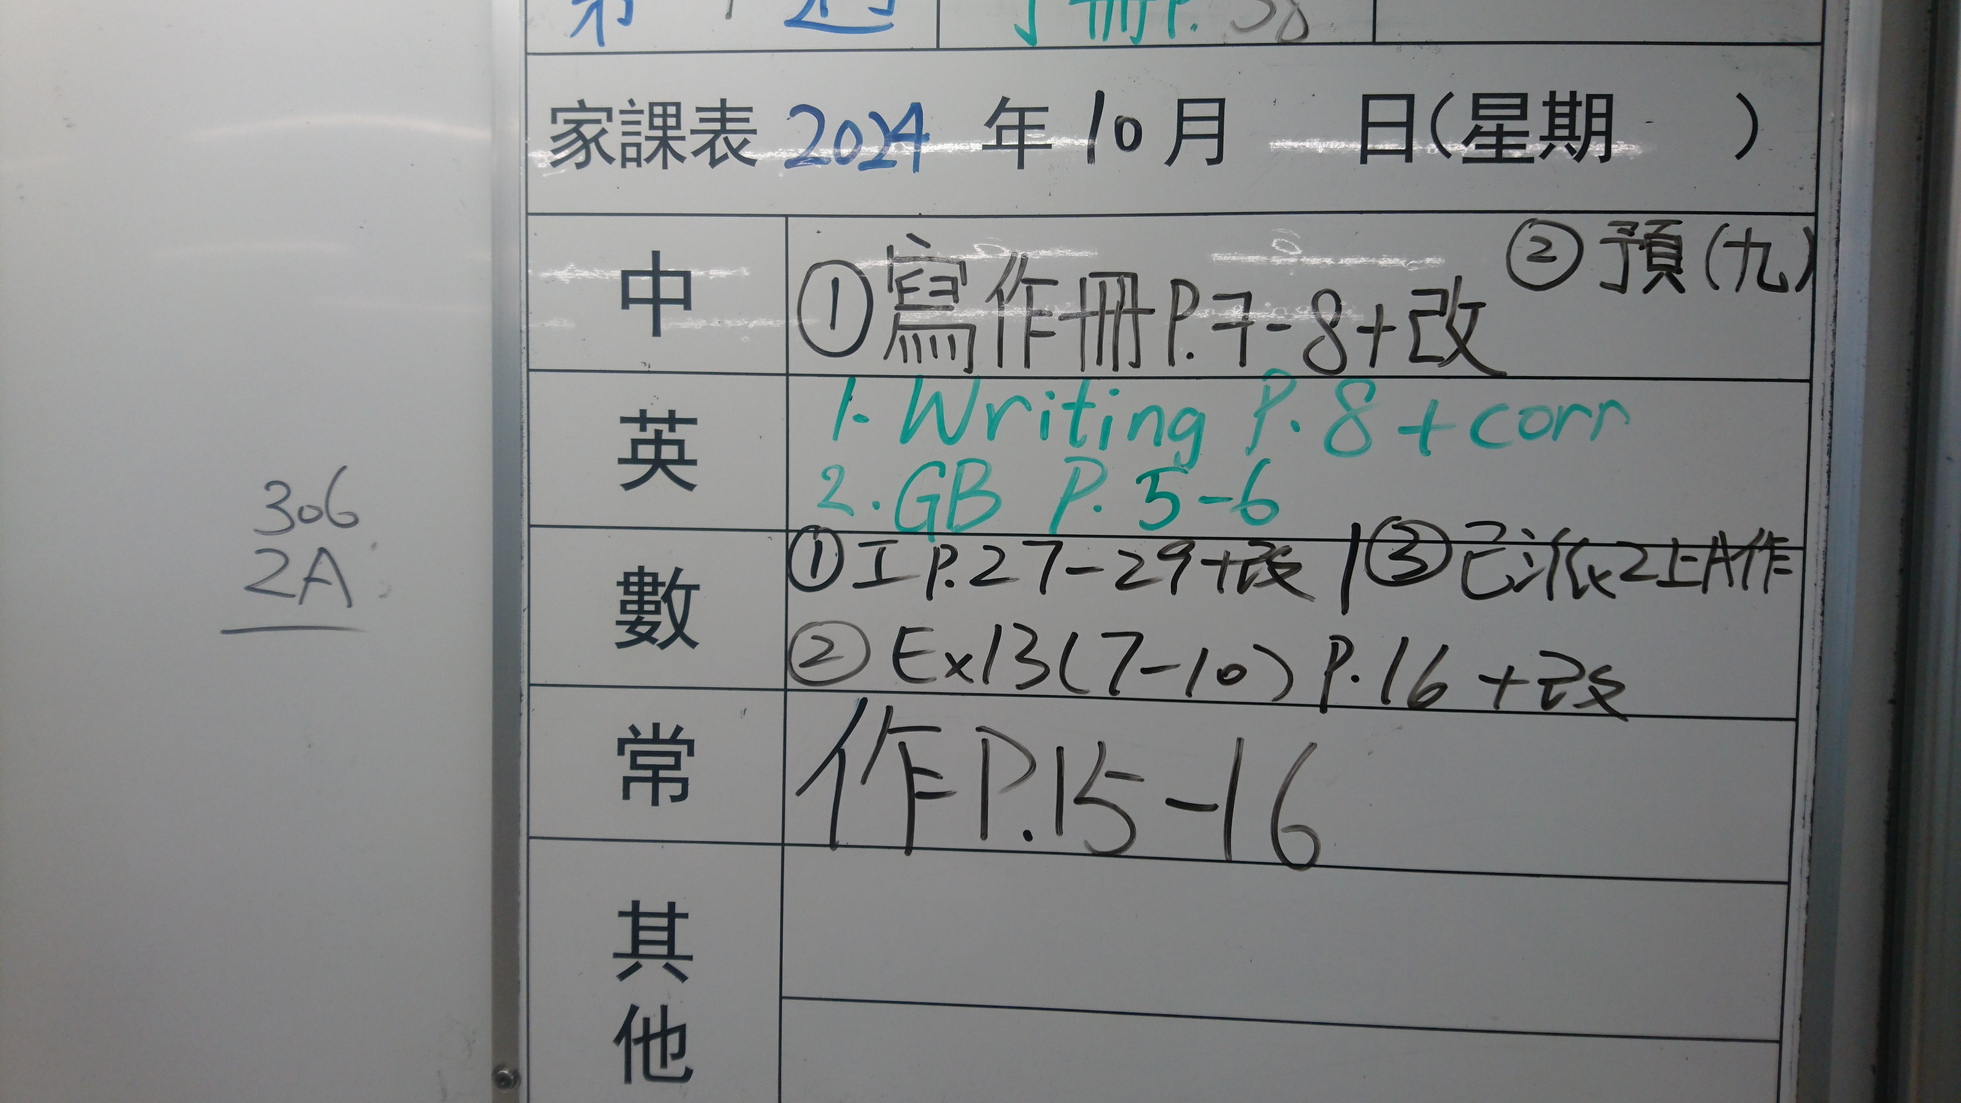 第 週
手冊P. 38
家課表 2024 年 10 月 日(星期 )
中 ①寫作冊P.7-8+改 ②預(九)
英 1. Writing P. 8 + corr
2. GB P. 5-6
數 ①工P.27-29+改 | ③已派2上A作
②Ex13(7-10) P.16 +改
常 作P.15-16
其他
306
2A